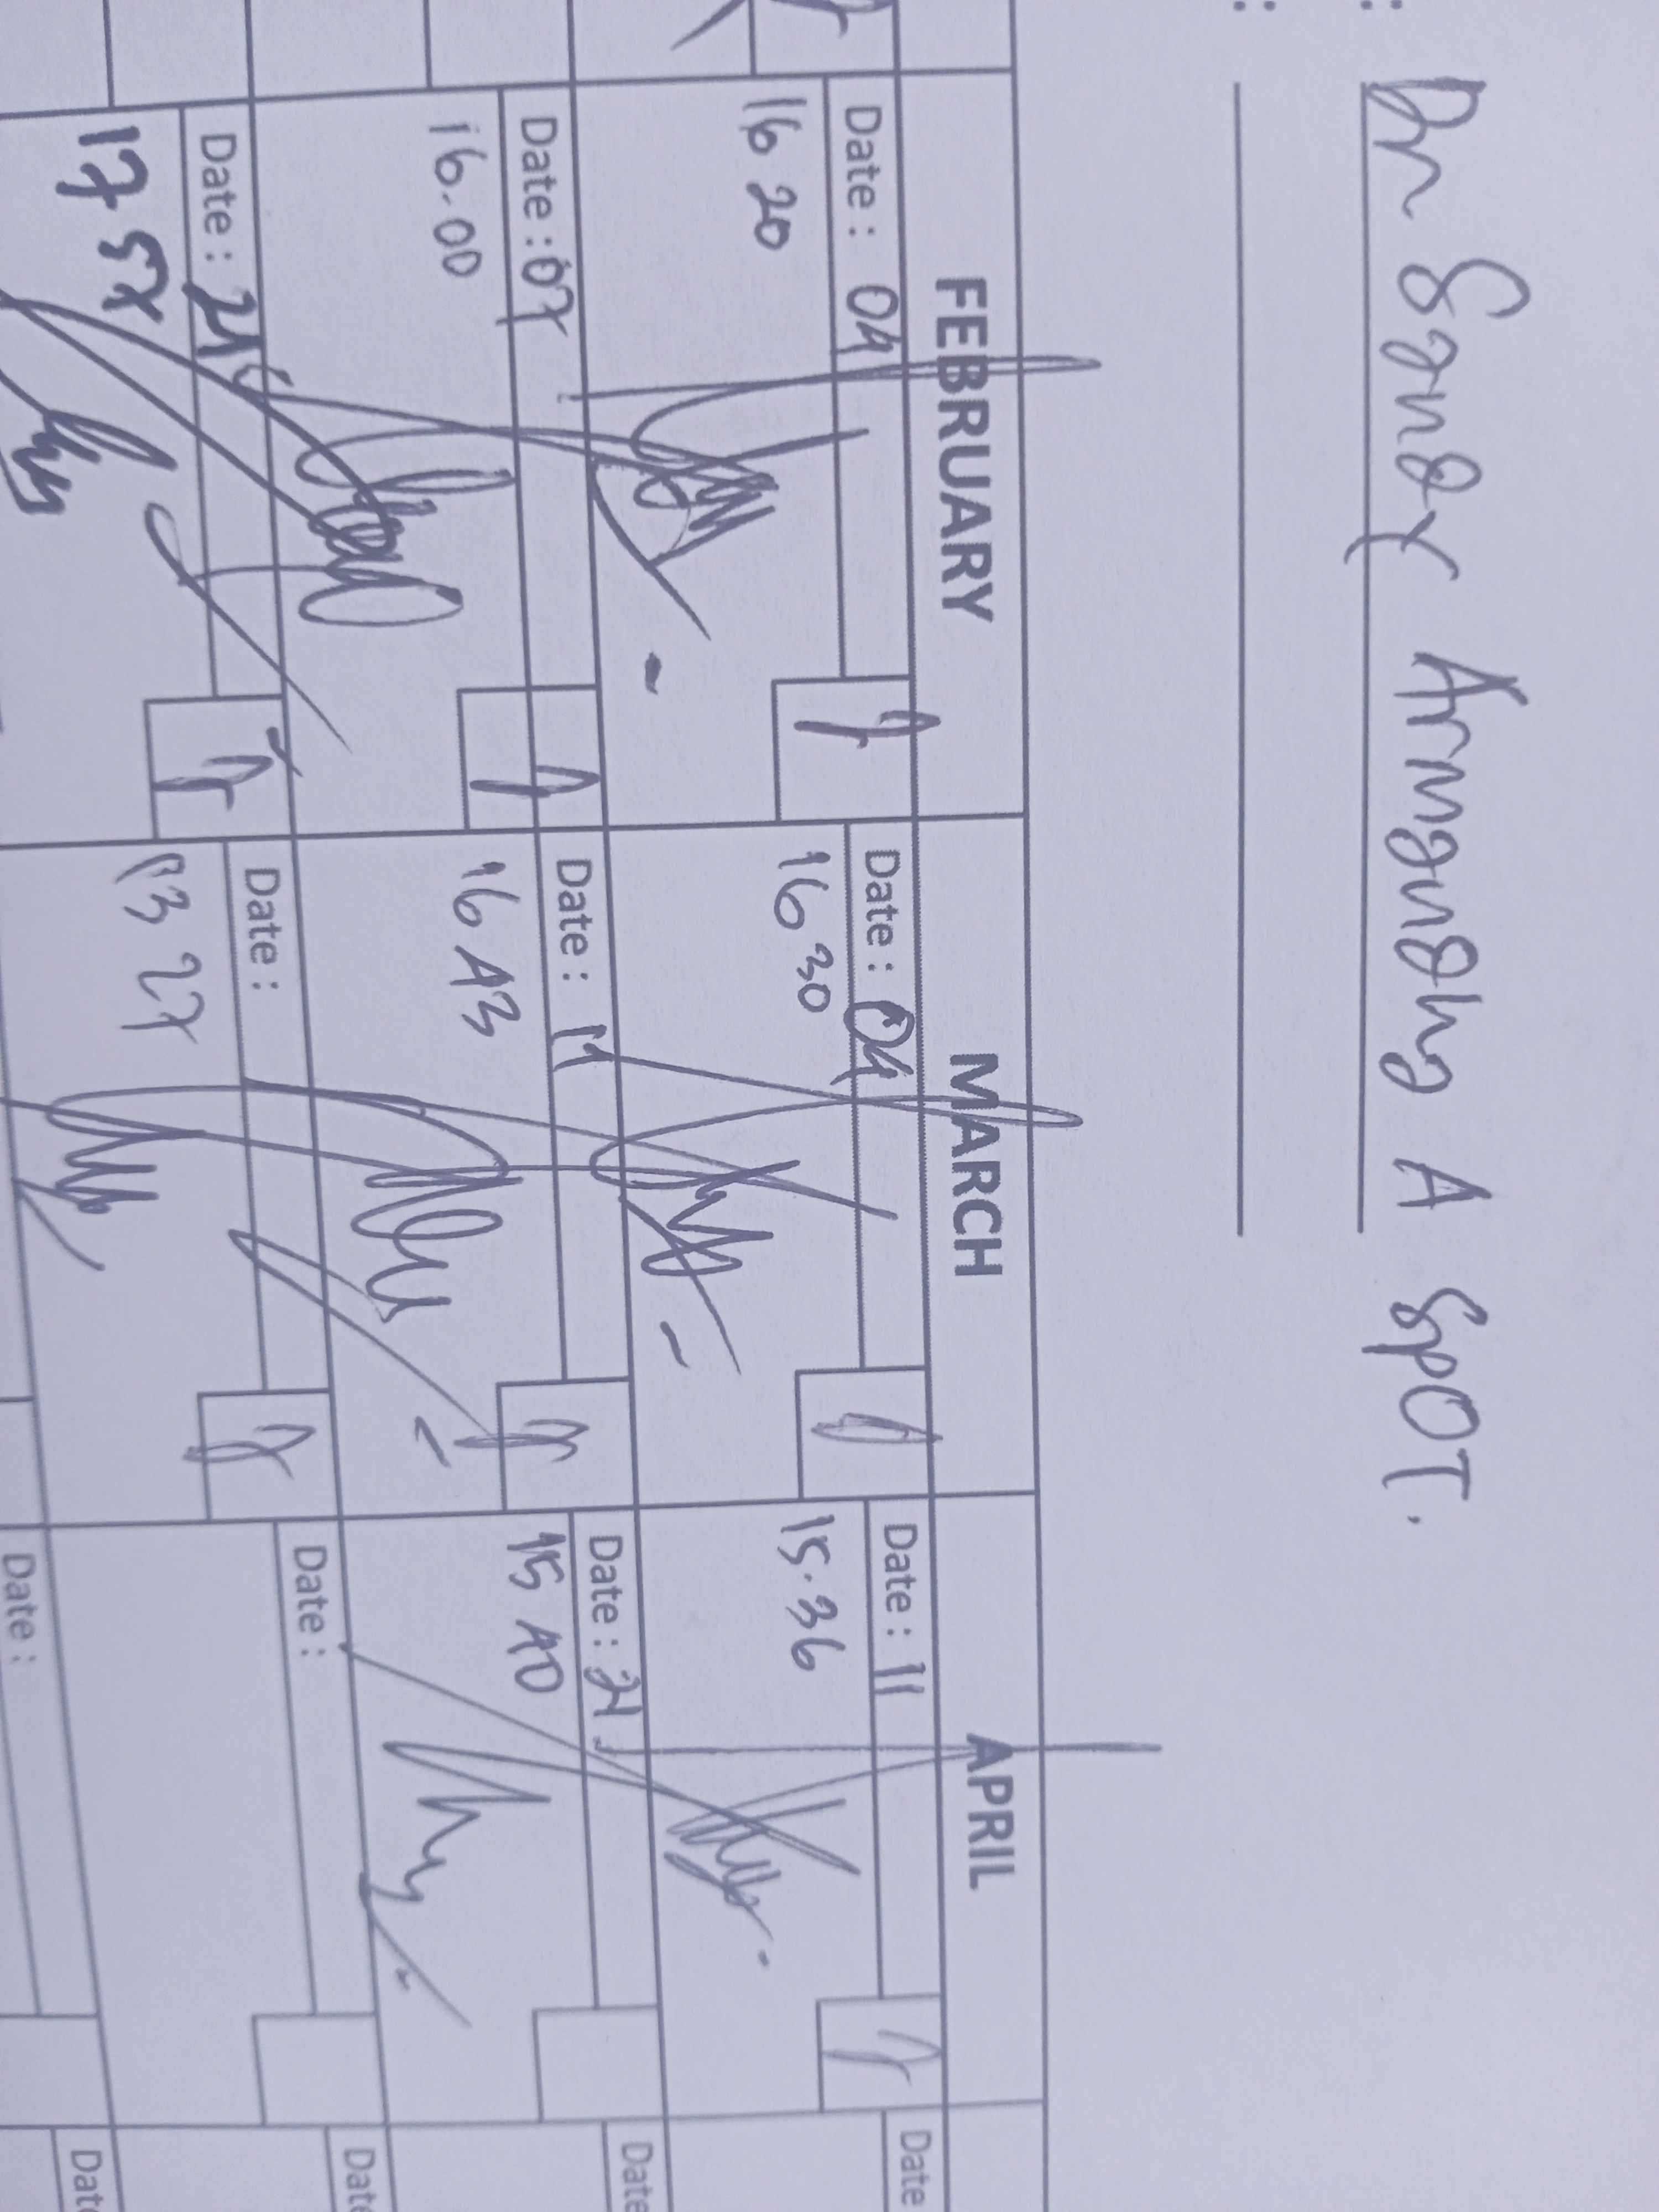 : Dr Sandy Armandha A SpOT.
:
FEBRUARY MARCH APRIL
Date : 04 Date : 04 Date : 11 Date
16 20 16 30 15.36
Date : 07 Date : 11 Date : 21 Date
16.00 16 43 15 40
Date : 21 Date : Date : Date
17 57 13 27
Date : Date